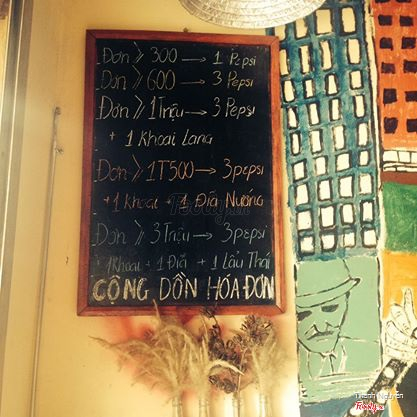 Đơn ≥ 300 → 1 Pepsi
Đơn ≥ 600 → 3 Pepsi
Đơn ≥ 1Triệu → 3 Pepsi
+ 1 Khoai Lang
Đơn ≥ 1T500 → 3pepsi
+ 1 Khoai + 1 Đĩa Nướng
Đơn ≥ 3Triệu → 3pepsi
+ 1Khoai + 1 Đĩa + 1 Lẩu Thái
CỘNG DỒN HÓA ĐƠN
Foody.vn
Thành Nguyễn
Foody.vn